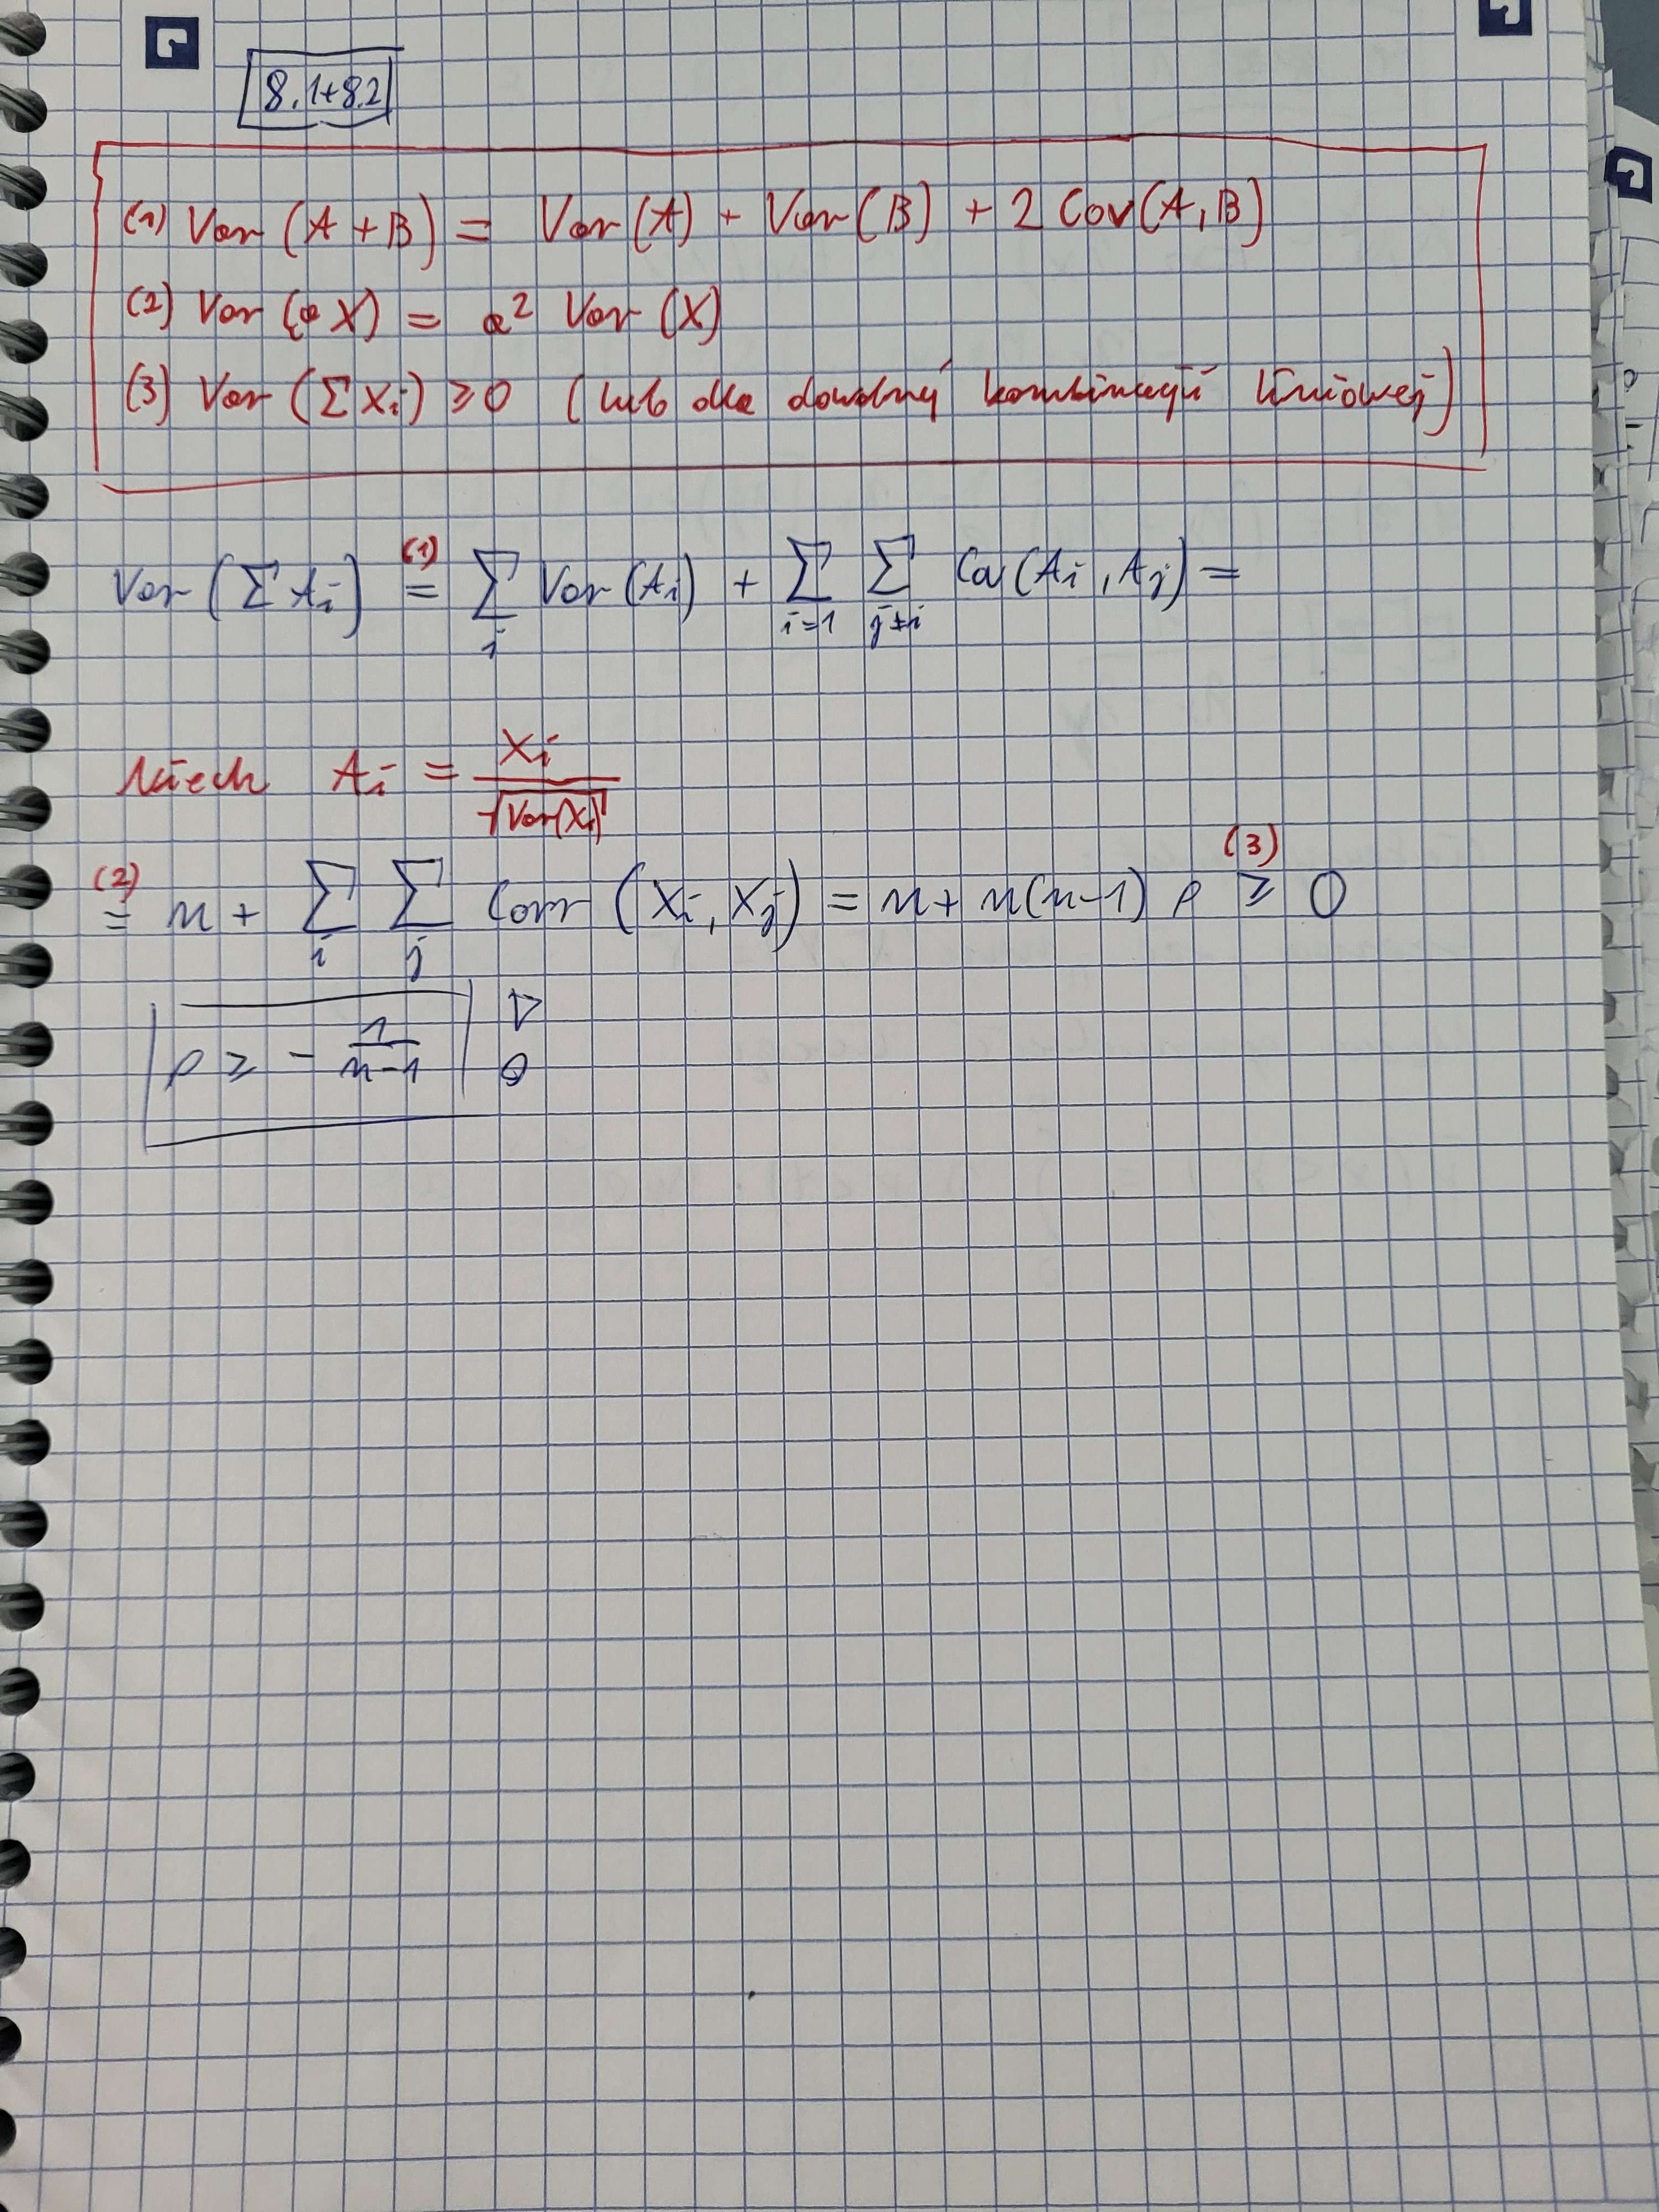 8.1+8.2
(1) Var (A + B) = Var (A) + Var (B) + 2 Cov (A, B)
(2) Var (a X) = a² Var (X)
(3) Var (Σ Xi) ≥ 0 (lub dla dowolnej kombinacji liniowej)
Var (Σ Ai) (1)= Σ_i Var (Ai) + Σ_{i=1} Σ_{j≠i} Cov (Ai, Aj) =
Niech Ai = Xi / √Var(Xi)
(2)= n + Σ_i Σ_j Corr (Xi, Xj) = n + n(n-1) ρ (3)≥ 0
ρ ≥ - 1/(n-1)